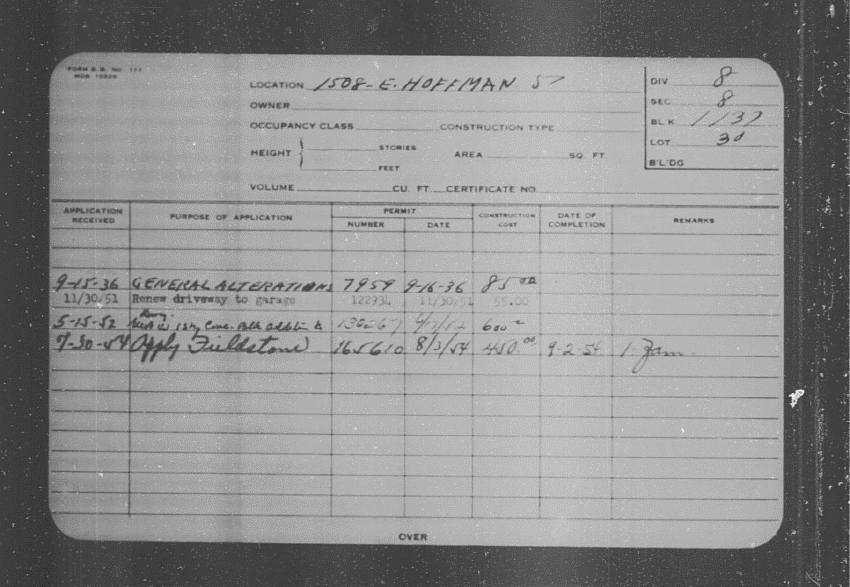 FORM B.B. No. 111
LOCATION 1508- E. HOFFMAN ST
DIV 8
OWNER
SEC 8
OCCUPANCY CLASS CONSTRUCTION TYPE
BLK 1137
HEIGHT STORIES AREA SQ. FT.
LOT 30
FEET
B'L'DG
VOLUME CU. FT. CERTIFICATE NO.
APPLICATION RECEIVED PURPOSE OF APPLICATION PERMIT NUMBER DATE CONSTRUCTION COST DATE OF COMPLETION REMARKS
9-15-36 GENERAL ALTERATIONS 7959 9-16-36 85 00
11/30/51 Renew driveway to garage 122934 11/30/51 55.00
5-15-52 1 sty Conc. Blk addition 600
7-30-54 Apply Fieldstone 165610 8/3/54 450.00 9-2-54 1-
OVER